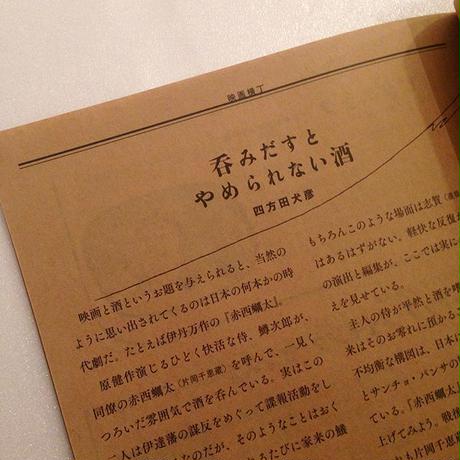 映画横丁
呑みだすと
やめられない酒
四方田犬彦
映画と酒というお題を与えられると、当然の
ように思い出されてくるのは日本の何本かの時
代劇だ。たとえば伊丹万作の『赤西蠣太』。
原健作演じるひどく快活な侍、鱒次郎が、
同僚の赤西蠣太（片岡千恵蔵）を呼んで、一見く
つろいだ雰囲気で酒を呑んでいる。実はこの
二人は伊達藩の謀反をめぐって諜報活動をし
なのだが、そのようなことはおく
るたびに家来の餓
もちろんこのような場面は志賀（
はあるはずがない。軽快な反復が
の演出と編集が、ここでは実に
えを見せている。
主人の侍が平然と酒を
来はそのお零れに預かるこ
不均衡な構図は、日本に
とサンチョ・パンサの
ている。『赤西蠣太』
上げてみよう。戦後
も片岡千恵